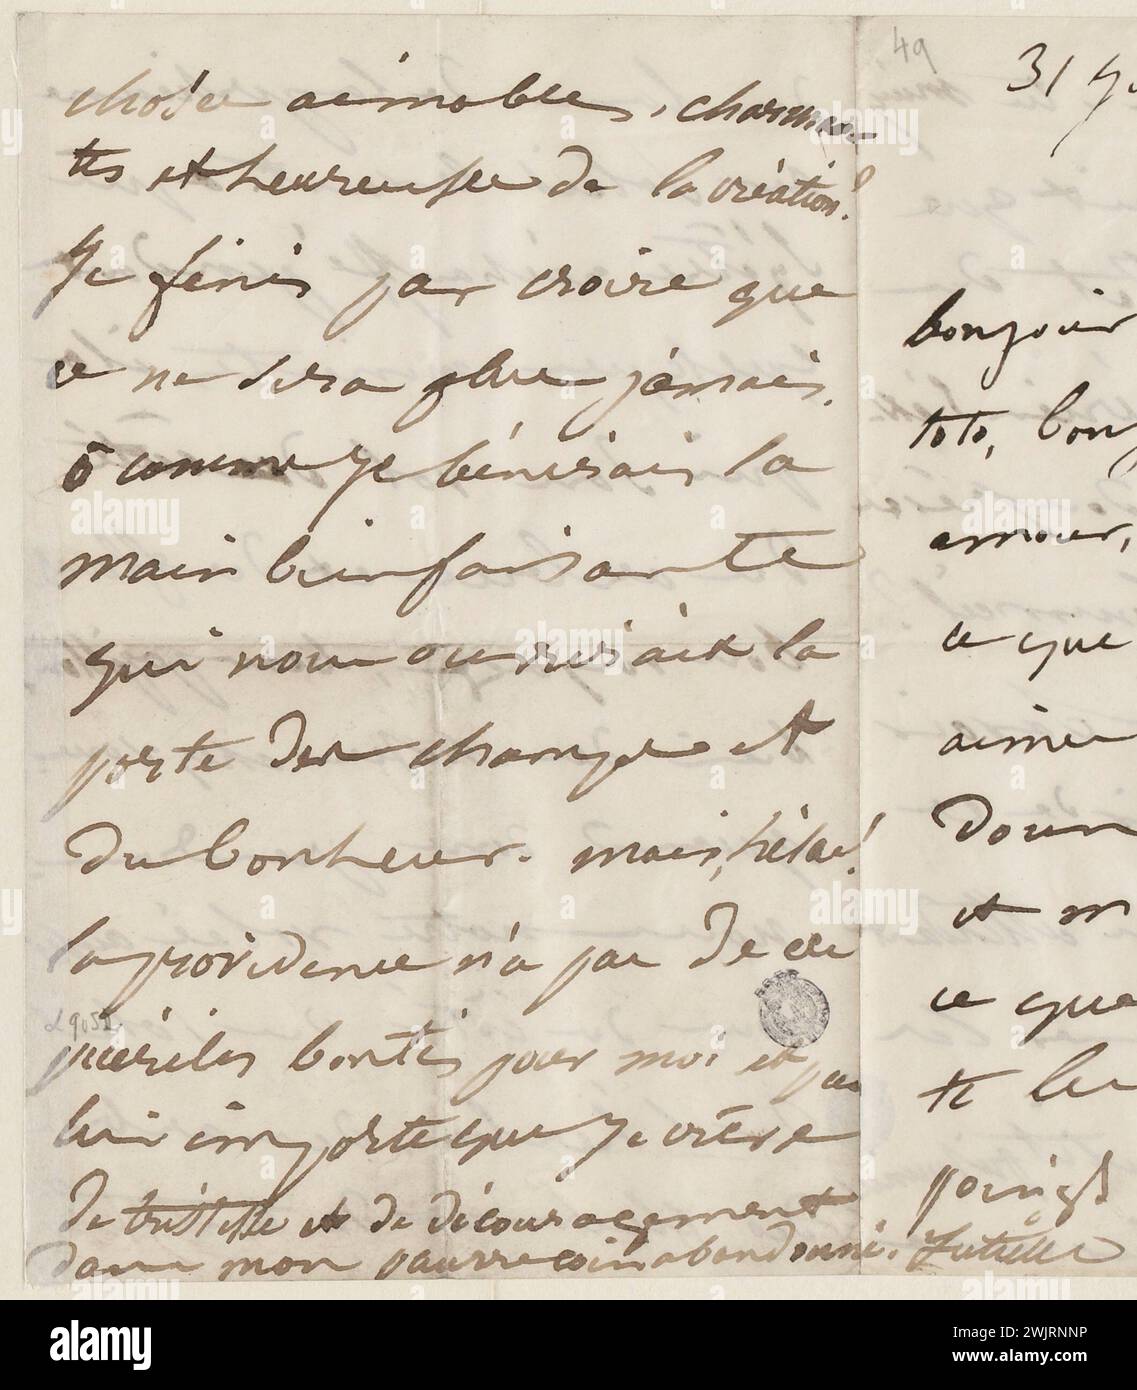 choses aimables, charman-
tes et heureuses de la création?
Je finis par croire que
ce ne sera plus jamais.
ô comme je bénirais la
main bienfaisante
qui nous ouvrirait la
porte des champs et
du bonheur. mais, hélas!
la providence n'a pas de ces
puériles bontés pour moi et peu
lui importe que je crève
de tristesse et de découragement
dans mon pauvre coin abandonné. Juliette
49
31
bonjour
toto, bonj
amour,
ce que
aimer
Dour
et m
ce que
te les
poings
alamy
Image ID: 2WJRNNP
www.alamy.com